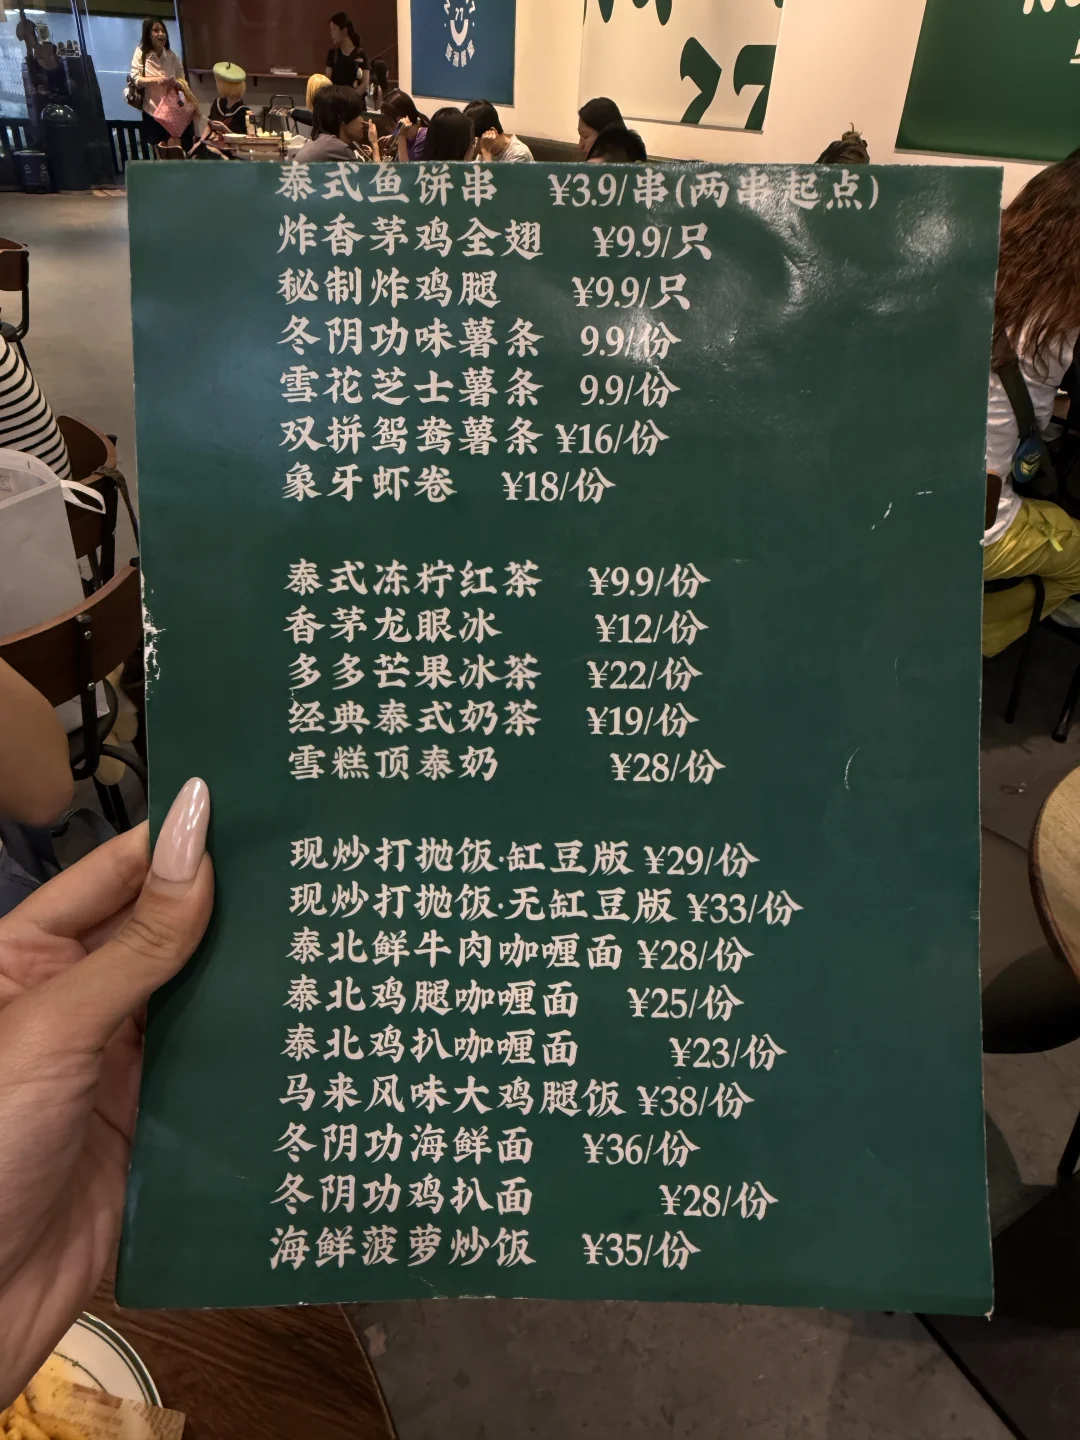 泰式鱼饼串 ¥3.9/串(两串起点)
炸香茅鸡全翅 ¥9.9/只
秘制炸鸡腿 ¥9.9/只
冬阴功味薯条 9.9/份
雪花芝士薯条 9.9/份
双拼鸳鸯薯条 ¥16/份
象牙虾卷 ¥18/份
泰式冻柠红茶 ¥9.9/份
香茅龙眼冰 ¥12/份
多多芒果冰茶 ¥22/份
经典泰式奶茶 ¥19/份
雪糕顶泰奶 ¥28/份
现炒打抛饭·缸豆版 ¥29/份
现炒打抛饭·无缸豆版 ¥33/份
泰北鲜牛肉咖喱面 ¥28/份
泰北鸡腿咖喱面 ¥25/份
泰北鸡扒咖喱面 ¥23/份
马来风味大鸡腿饭 ¥38/份
冬阴功海鲜面 ¥36/份
冬阴功鸡扒面 ¥28/份
海鲜菠萝炒饭 ¥35/份